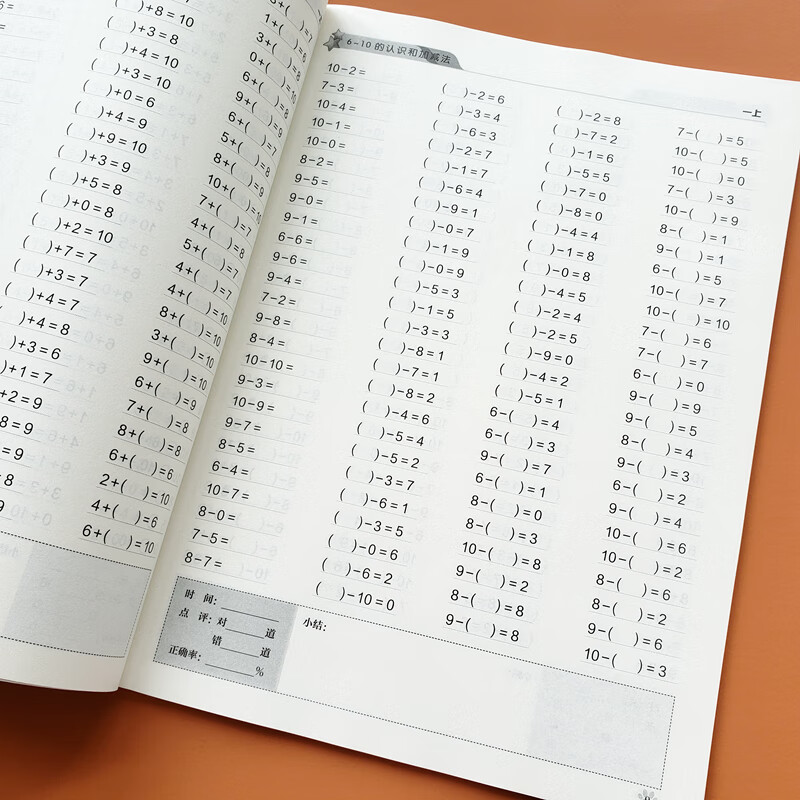 +8=10
( )+3=8
( )+4=10
( )+3=10
( )+0=6
( )+4=9
( )+9=10
( )+3=9
( )+5=8
( )+0=8
( )+2=10
( )+7=7
( )+3=7
( )+4=7
)+4=8
)+3=6
)+1=7
+2=9
8=9
=9
9
3+( )=6
0+( )=6
6+( )=10
9+( )=9
6+( )=7
5+( )=8
8+( )=9
10+( )=10
7+( )=7
4+( )=8
5+( )=7
4+( )=7
4+( )=10
8+( )=10
3+( )=10
9+( )=10
6+( )=9
7+( )=8
8+( )=8
6+( )=6
2+( )=10
4+( )=6
6+( )=10
6-10 的认识和加减法
一上
10-2=
7-3=
10-4=
10-1=
10-0=
8-2=
9-5=
9-0=
9-1=
6-6=
9-6=
9-4=
7-2=
9-8=
8-4=
10-10=
9-3=
10-9=
9-7=
8-5=
6-4=
10-7=
8-0=
7-5=
8-7=
( )-2=6
( )-3=4
( )-6=3
( )-2=7
( )-1=7
( )-6=4
( )-9=1
( )-0=7
( )-1=9
( )-0=9
( )-5=3
( )-1=5
( )-3=3
( )-8=1
( )-7=1
( )-8=2
( )-4=6
( )-5=4
( )-5=2
( )-3=7
( )-6=1
( )-3=5
( )-0=6
( )-6=2
( )-10=0
( )-2=8
( )-7=2
( )-1=6
( )-5=5
( )-7=0
( )-8=0
( )-4=4
( )-1=8
( )-0=8
( )-4=5
( )-2=4
( )-2=5
( )-9=0
( )-4=2
( )-5=1
6-( )=4
6-( )=3
9-( )=7
6-( )=1
8-( )=0
8-( )=3
10-( )=8
9-( )=2
8-( )=8
9-( )=8
7-( )=5
10-( )=5
10-( )=0
7-( )=3
10-( )=9
8-( )=1
9-( )=1
6-( )=5
10-( )=7
10-( )=10
7-( )=6
7-( )=7
6-( )=0
9-( )=9
9-( )=5
8-( )=4
9-( )=3
6-( )=2
9-( )=4
10-( )=6
10-( )=2
8-( )=6
8-( )=2
9-( )=6
10-( )=3
时 间：
点 评：对 道
错 道
正确率： %
小结：